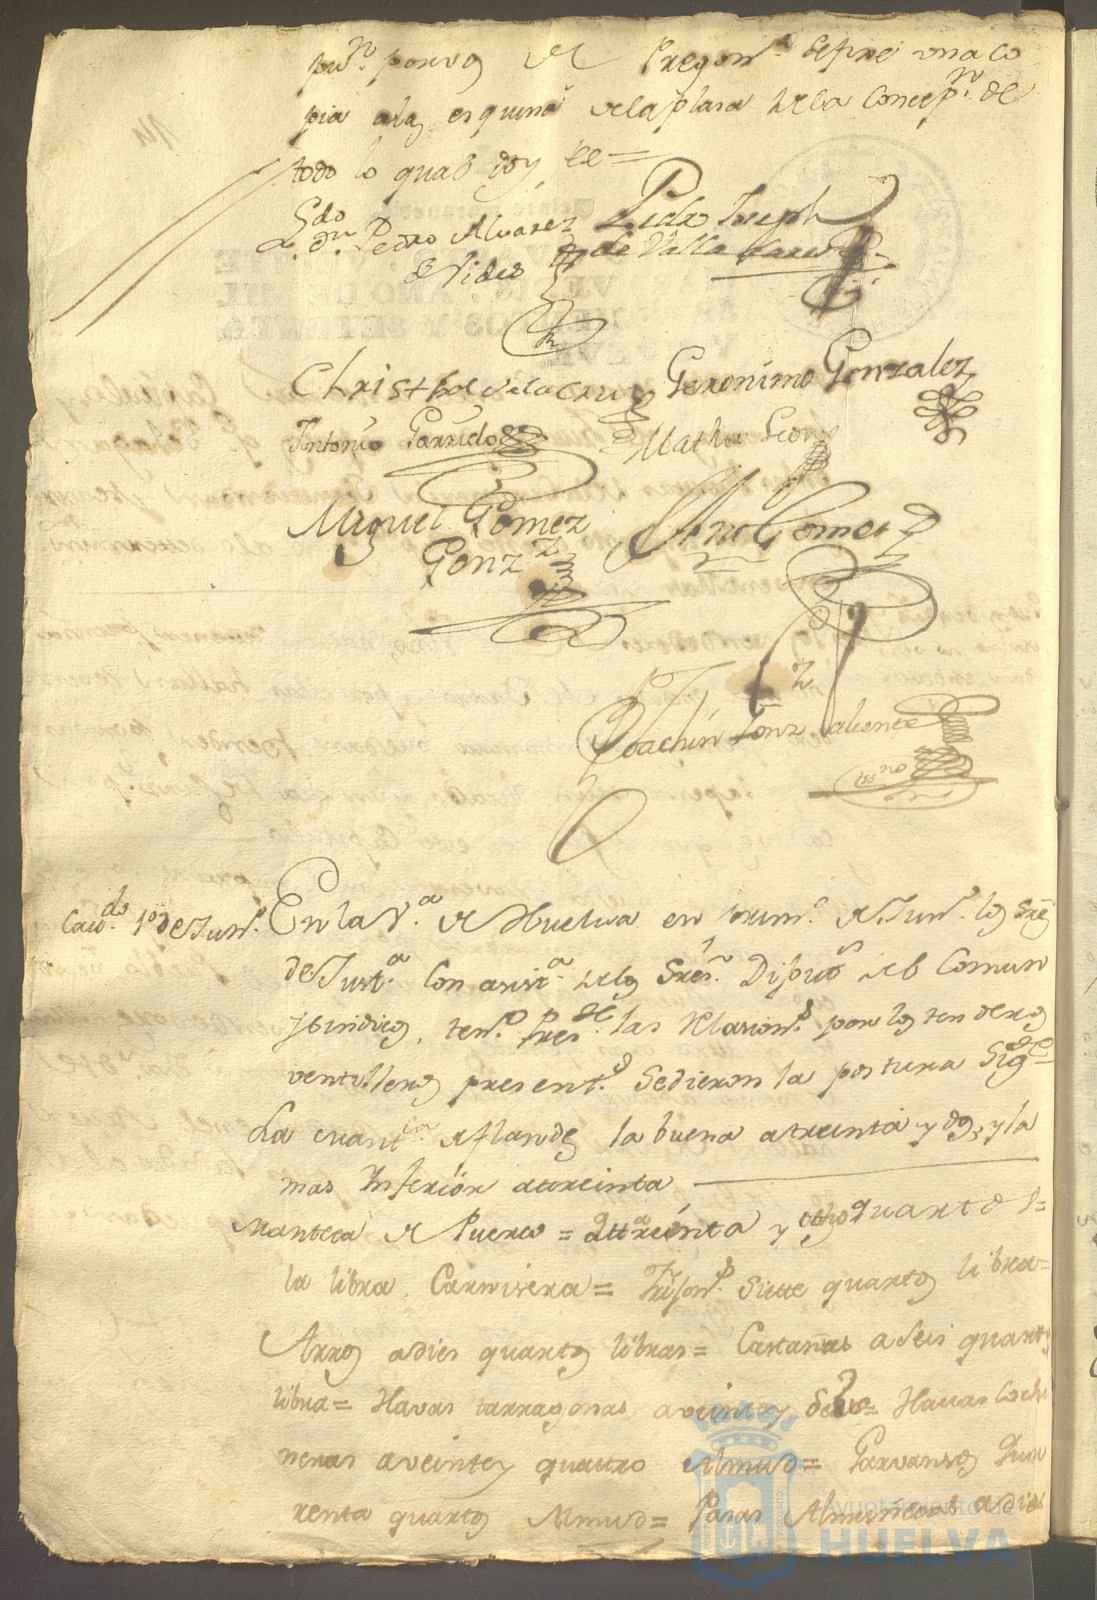 pu.n por vos de Pregon.o se fixé una co
pia a las esquina de la plasa de la Concep.n de
todo lo qual doy fe=
L.do dn Pedro Alvarez Pedro Joseph
de Valladares
Christhol de la Cruz Geronimo Gonzalez
Antonio Garrido Matheo
Miguel Gomez
Gonz.z Gomez
Joachin Gonz.z Valiente
ess.no
Cav.do 1.o de Jun.o En la V.a de Huelva en prim.o de Jun.o los Sres
de Just.a con asist.a de los Sres Diput.s del Comun
y Sindico, ten.do pres.te las Relasion.s por los tenderos
ventilleros present.s se dieron la postura Sig.te
La de flandes la buena a treinta y dos, y la
mas Inferior a treinta
Manteca de Puerco = a treinta y ocho quartos
la libra Carnisera = siete quartos libra=
Arros a dies quartos libras= Castañas a seis quartos
libra= Havas tarragonas a veinte y = Havas
neras a veinte y quatro Almud= Garvansos qua
renta quartos Almud= Pasas a dies
Ayuntamiento de
HUELVA